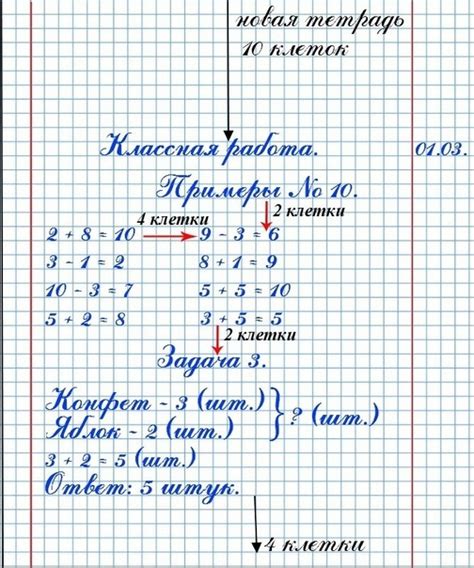 новая тетрадь
10 клеток
Классная работа. 01.03.
Примеры № 10.
4 клетки 2 клетки
2 + 8 = 10 9 - 3 = 6
3 - 1 = 2 8 + 1 = 9
10 - 3 = 7 5 + 5 = 10
5 + 2 = 8 3 + 5 = 5
2 клетки
Задача 3.
Конфет - 3 (шт.)
Яблок - 2 (шт.) } ? (шт.)
3 + 2 = 5 (шт.)
Ответ: 5 штук.
4 клетки